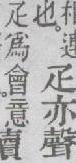 連
也。
疋亦聲
疋爲會意